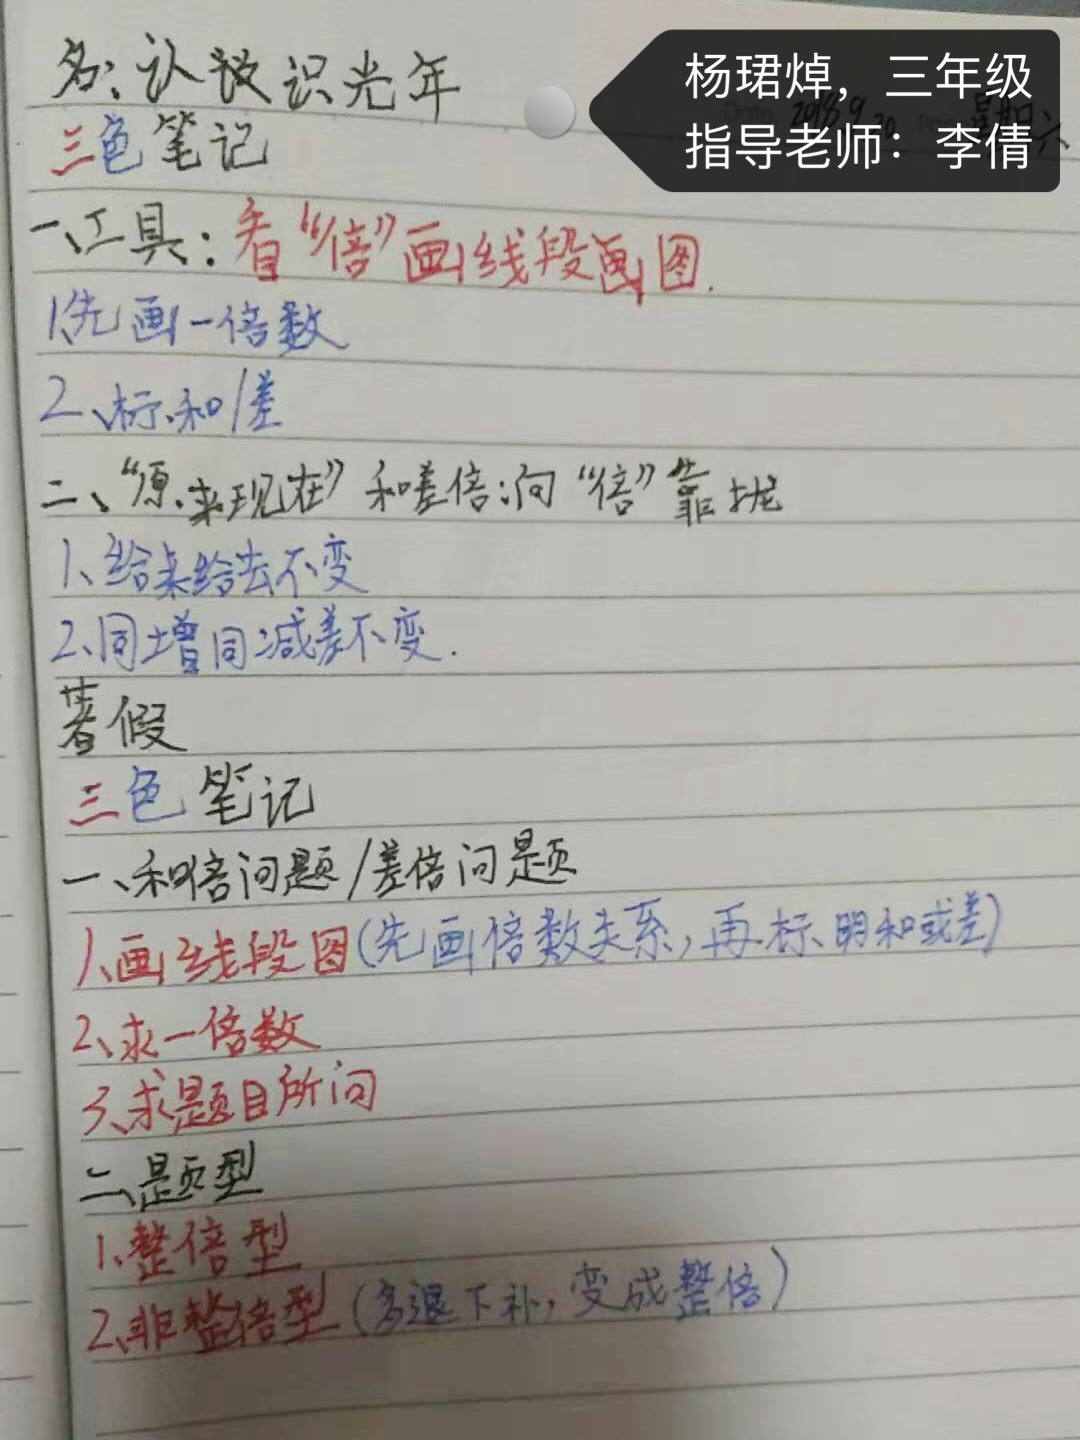 杨珺焯，三年级
指导老师：李倩
2018.9
星期六
名：认识光年
三色笔记
一、工具：看“倍”画线段画图.
1、先画一倍数
2、标和/差
二、“原来现在”和差倍：向“倍”靠拢
1、给来给去不变
2、同增同减差不变.
暑假
三色笔记
一、和倍问题/差倍问题
1、画线段图(先画倍数关系，再标明和或差)
2、求一倍数
3、求题目所问
二、题型
1、整倍型
2、非整倍型(多退下补，变成整倍)